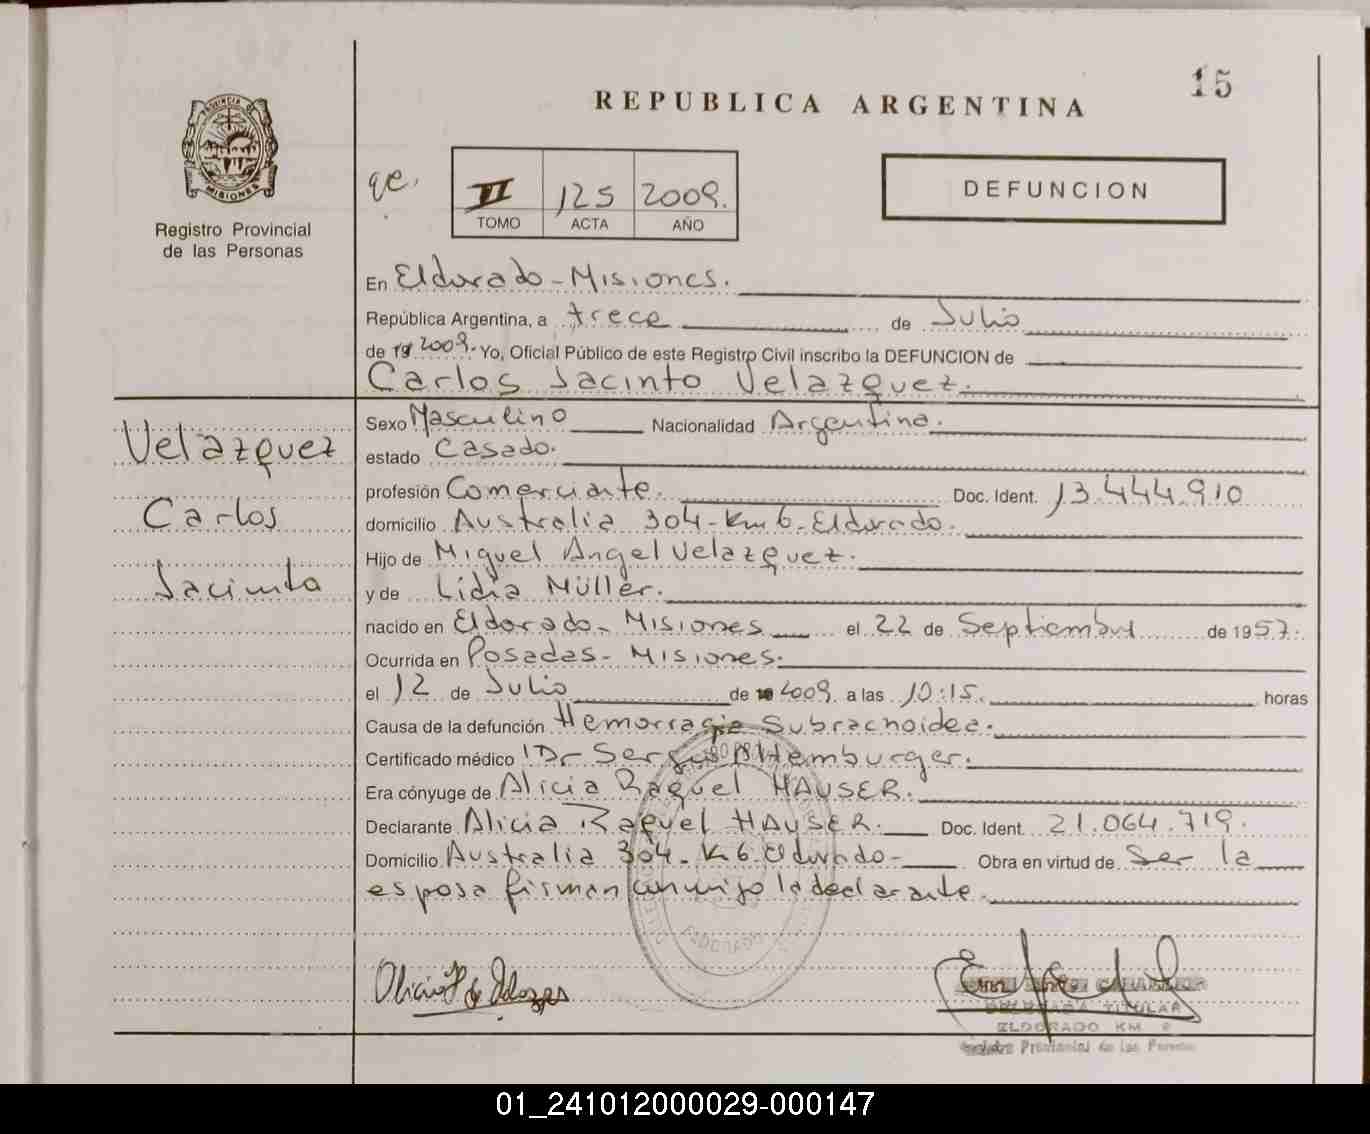 15
REPUBLICA ARGENTINA
PROVINCIA DE
MISIONES
Registro Provincial
de las Personas
II 125 2009.
TOMO ACTA AÑO
DEFUNCION
En Eldorado - Misiones.
República Argentina, a trece de Julio
de 19 2009. Yo, Oficial Público de este Registro Civil inscribo la DEFUNCION de
Carlos Jacinto Velazquez.
Velazquez
Carlos
Jacinto
Sexo Masculino Nacionalidad Argentina.
estado Casado.
profesión Comerciante. Doc. Ident. 13.444.910
domicilio Australia 304 - Km 6. Eldorado.
Hijo de Miguel Angel Velazquez.
y de Lidia Müller.
nacido en Eldorado - Misiones el 22 de Septiembre de 1957.
Ocurrida en Posadas - Misiones.
el 12 de Julio de 2009. a las 10:15. horas
Causa de la defunción Hemorragia Subracnoidea.
Certificado médico Dr Sergio Altemburger.
Era cónyuge de Alicia Raquel HAUSER.
Declarante Alicia Raquel HAUSER. Doc. Ident. 21.064.719.
Domicilio Australia 304 - K 6. Eldorado - Obra en virtud de Ser la
esposa firman conmigo la declarante.
ELDORADO
DELEGADA TITULAR
ELDORADO KM
Registro Provincial de las Personas
01_241012000029-000147